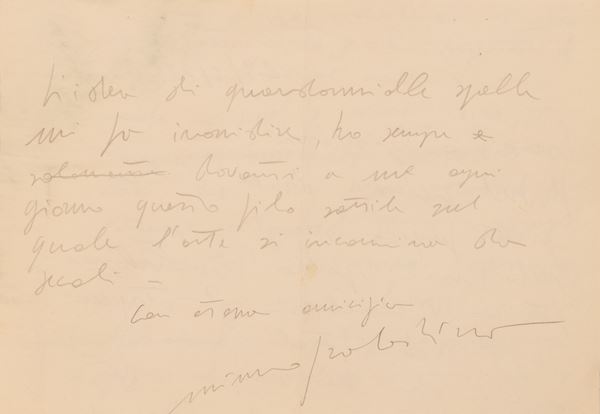 L'idea di guardarmi alle spalle
mi fa inorridire, ho sempre e
solamente davanti a me ogni
giorno questo filo sottile sul
quale l'arte si incammina da
secoli -
con eterna amicizia
mimmo paladino